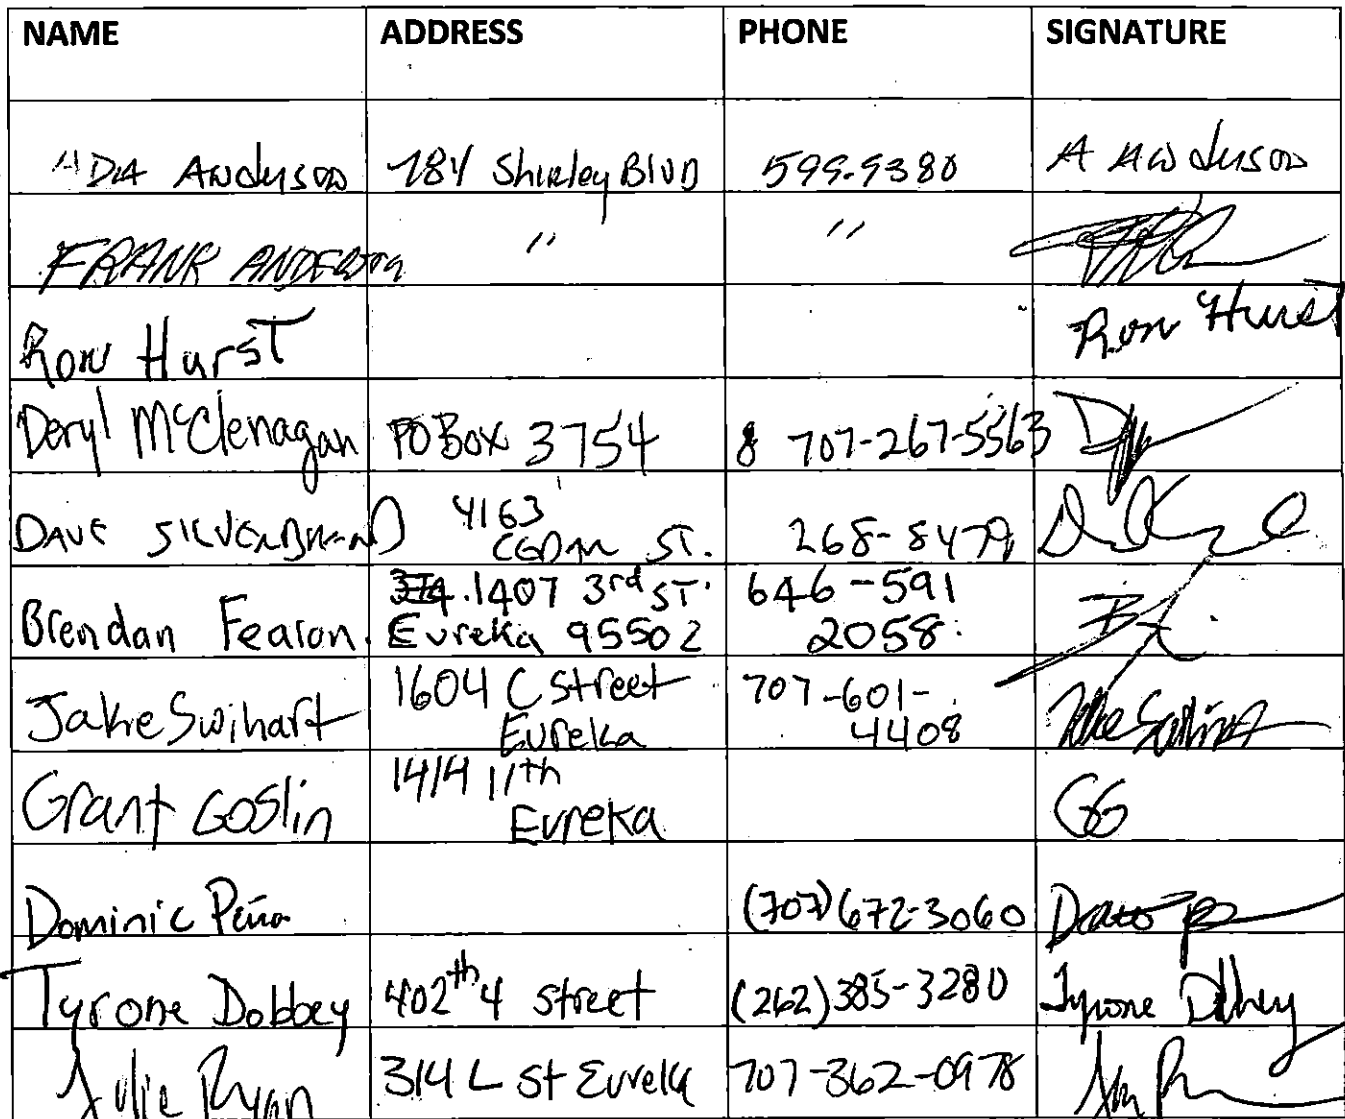 NAME ADDRESS PHONE SIGNATURE
ADA Anderson 784 Shirley BLVD 599-9380 A Anderson
FRANK ANDERSON " "
Ron Hurst Ron Hurst
Deryl McClenagan PO Box 3754 8 707-267-5563
DAVE SILVERBRAND 4163 CEDAR ST. 268-8479
Brendan Fearon. 1407 3rd ST. Eureka 95502 646-591 2058
Jake Swihart 1604 C Street Eureka 707-601-4408 Jake Swihart
Grant Goslin 1414 11th Eureka GG
Dominic Peña (707) 672-3060
Tyrone Dobbey 402th 4 street (262) 385-3280 Tyrone Dobbey
Julie Ryan 314 L St Eureka 707-362-0978